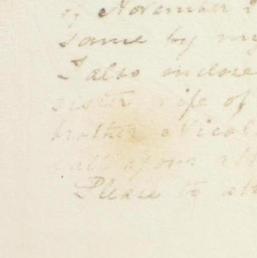 of November
same by my
I also enclose
sister wife of
brother Nicol
call upon
Please to